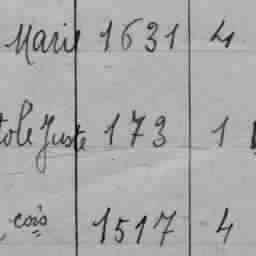 Marie 1631 4
tole Juste 173 1
cois 1517 4